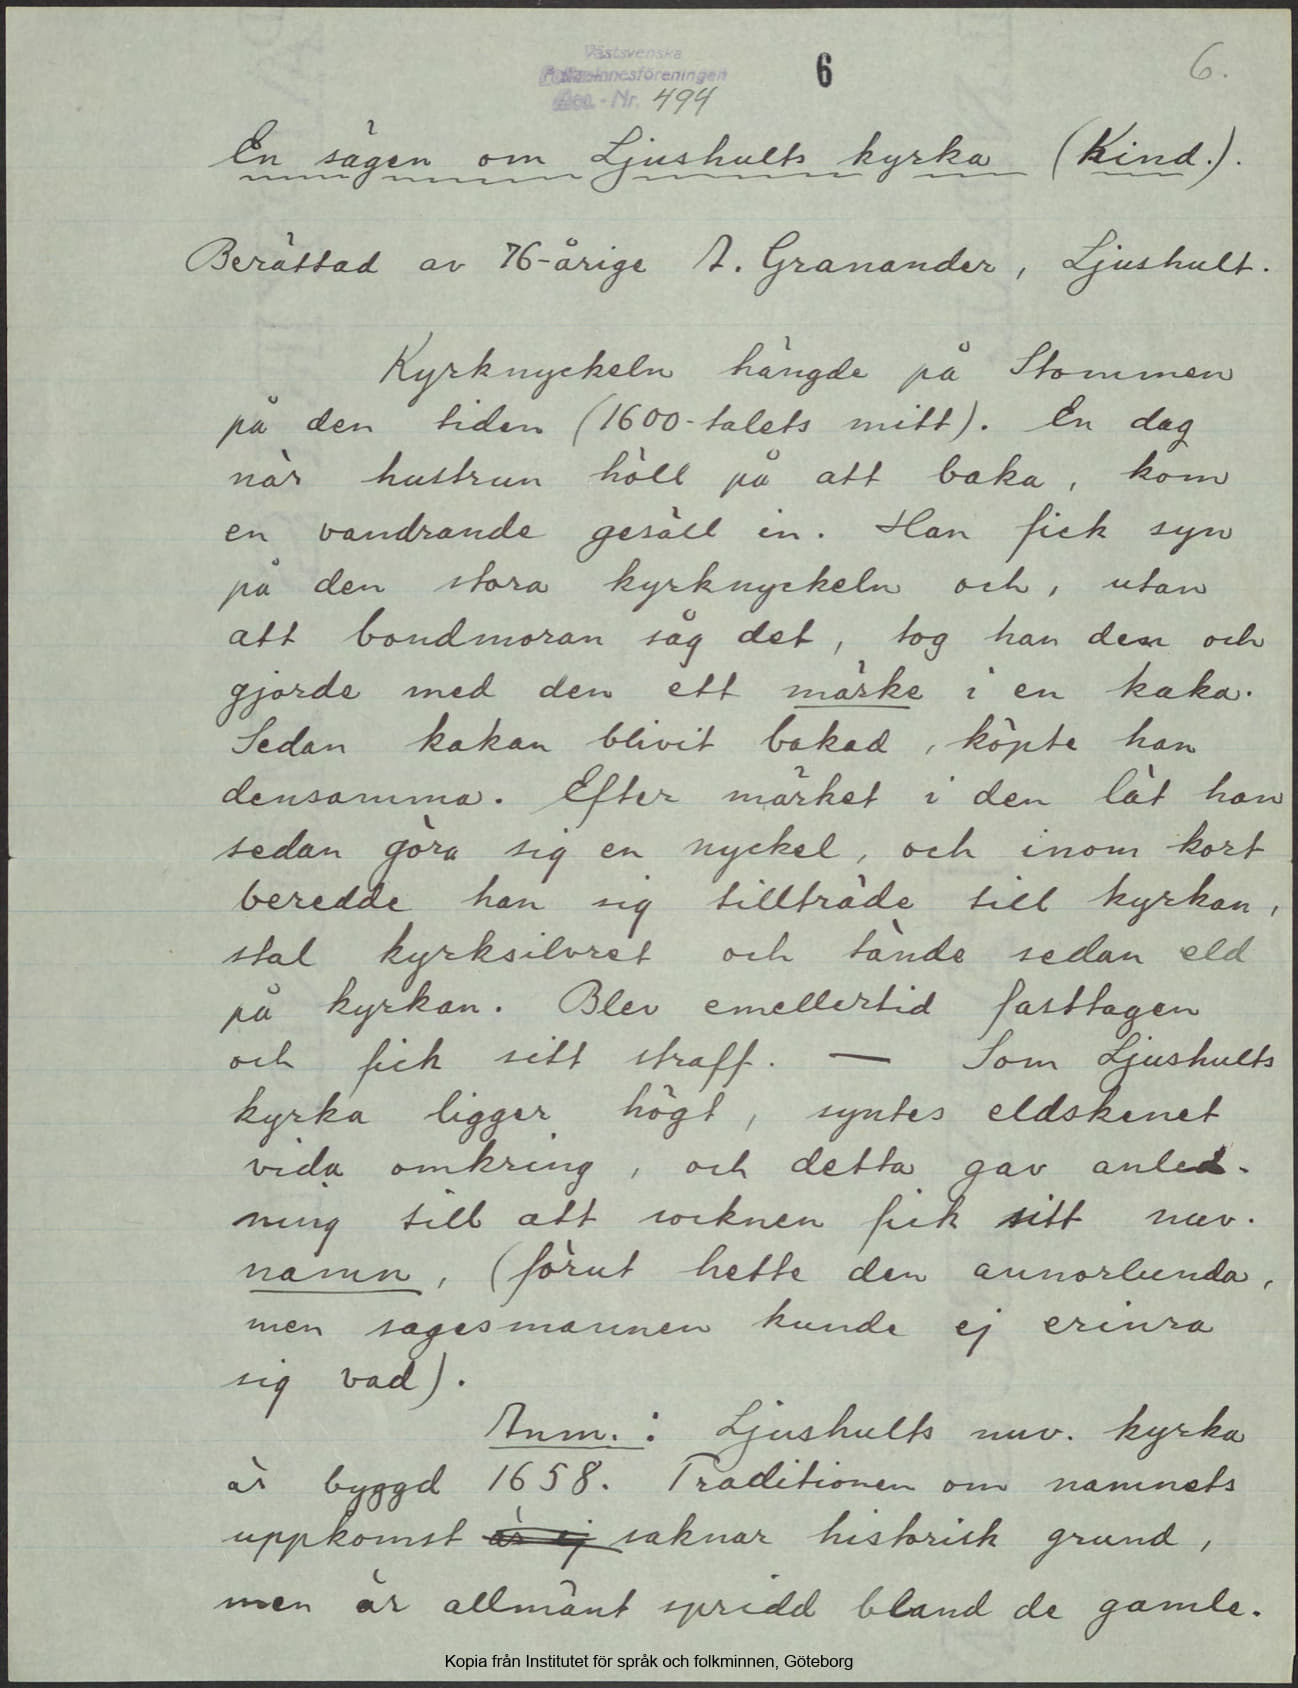 Västsvenska
Folkminnesföreningen
Acc. - Nr. 494
6
6.
En sägen om Ljushults kyrka (Kind.).
Berättad av 76-årige A. Granander, Ljushult.
Kyrknyckeln hängde på Stommen
på den tiden (1600-talets mitt). En dag
när hustrun höll på att baka, kom
en vandrande gesäll in. Han fick syn
på den stora kyrknyckeln och, utan
att bondmoran såg det, tog han den och
gjorde med den ett märke i en kaka.
Sedan kakan blivit bakad, köpte han
densamma. Efter märket i den lät han
sedan göra sig en nyckel, och inom kort
beredde han sig tillträde till kyrkan,
stal kyrksilvret och tände sedan eld
på kyrkan. Blev emellertid fasttagen
och fick sitt straff. — Som Ljushults
kyrka ligger högt, syntes eldskenet
vida omkring, och detta gav anled-
ning till att socknen fick sitt nuv.
namn, (förut hette den annorlunda,
men sagesmannen kunde ej erinra
sig vad).
Anm.: Ljushults nuv. kyrka
är byggd 1658. Traditionen om namnets
uppkomst är ej saknar historisk grund,
men är allmänt spridd bland de gamle.
Kopia från Institutet för språk och folkminnen, Göteborg